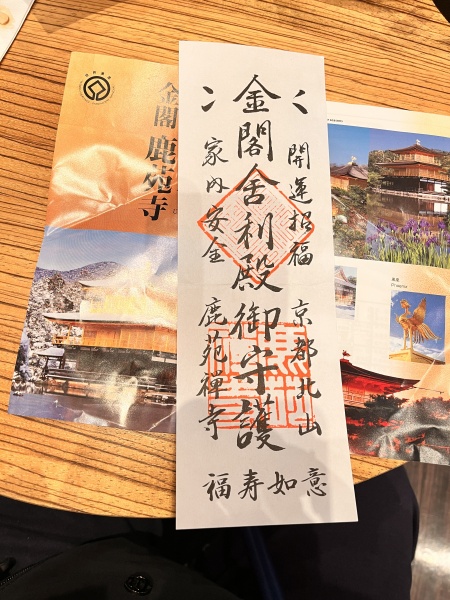 金閣舎利殿御守護
開運招福 京都北山
家内安全 鹿苑禅寺
福寿如意
金閣 鹿苑寺